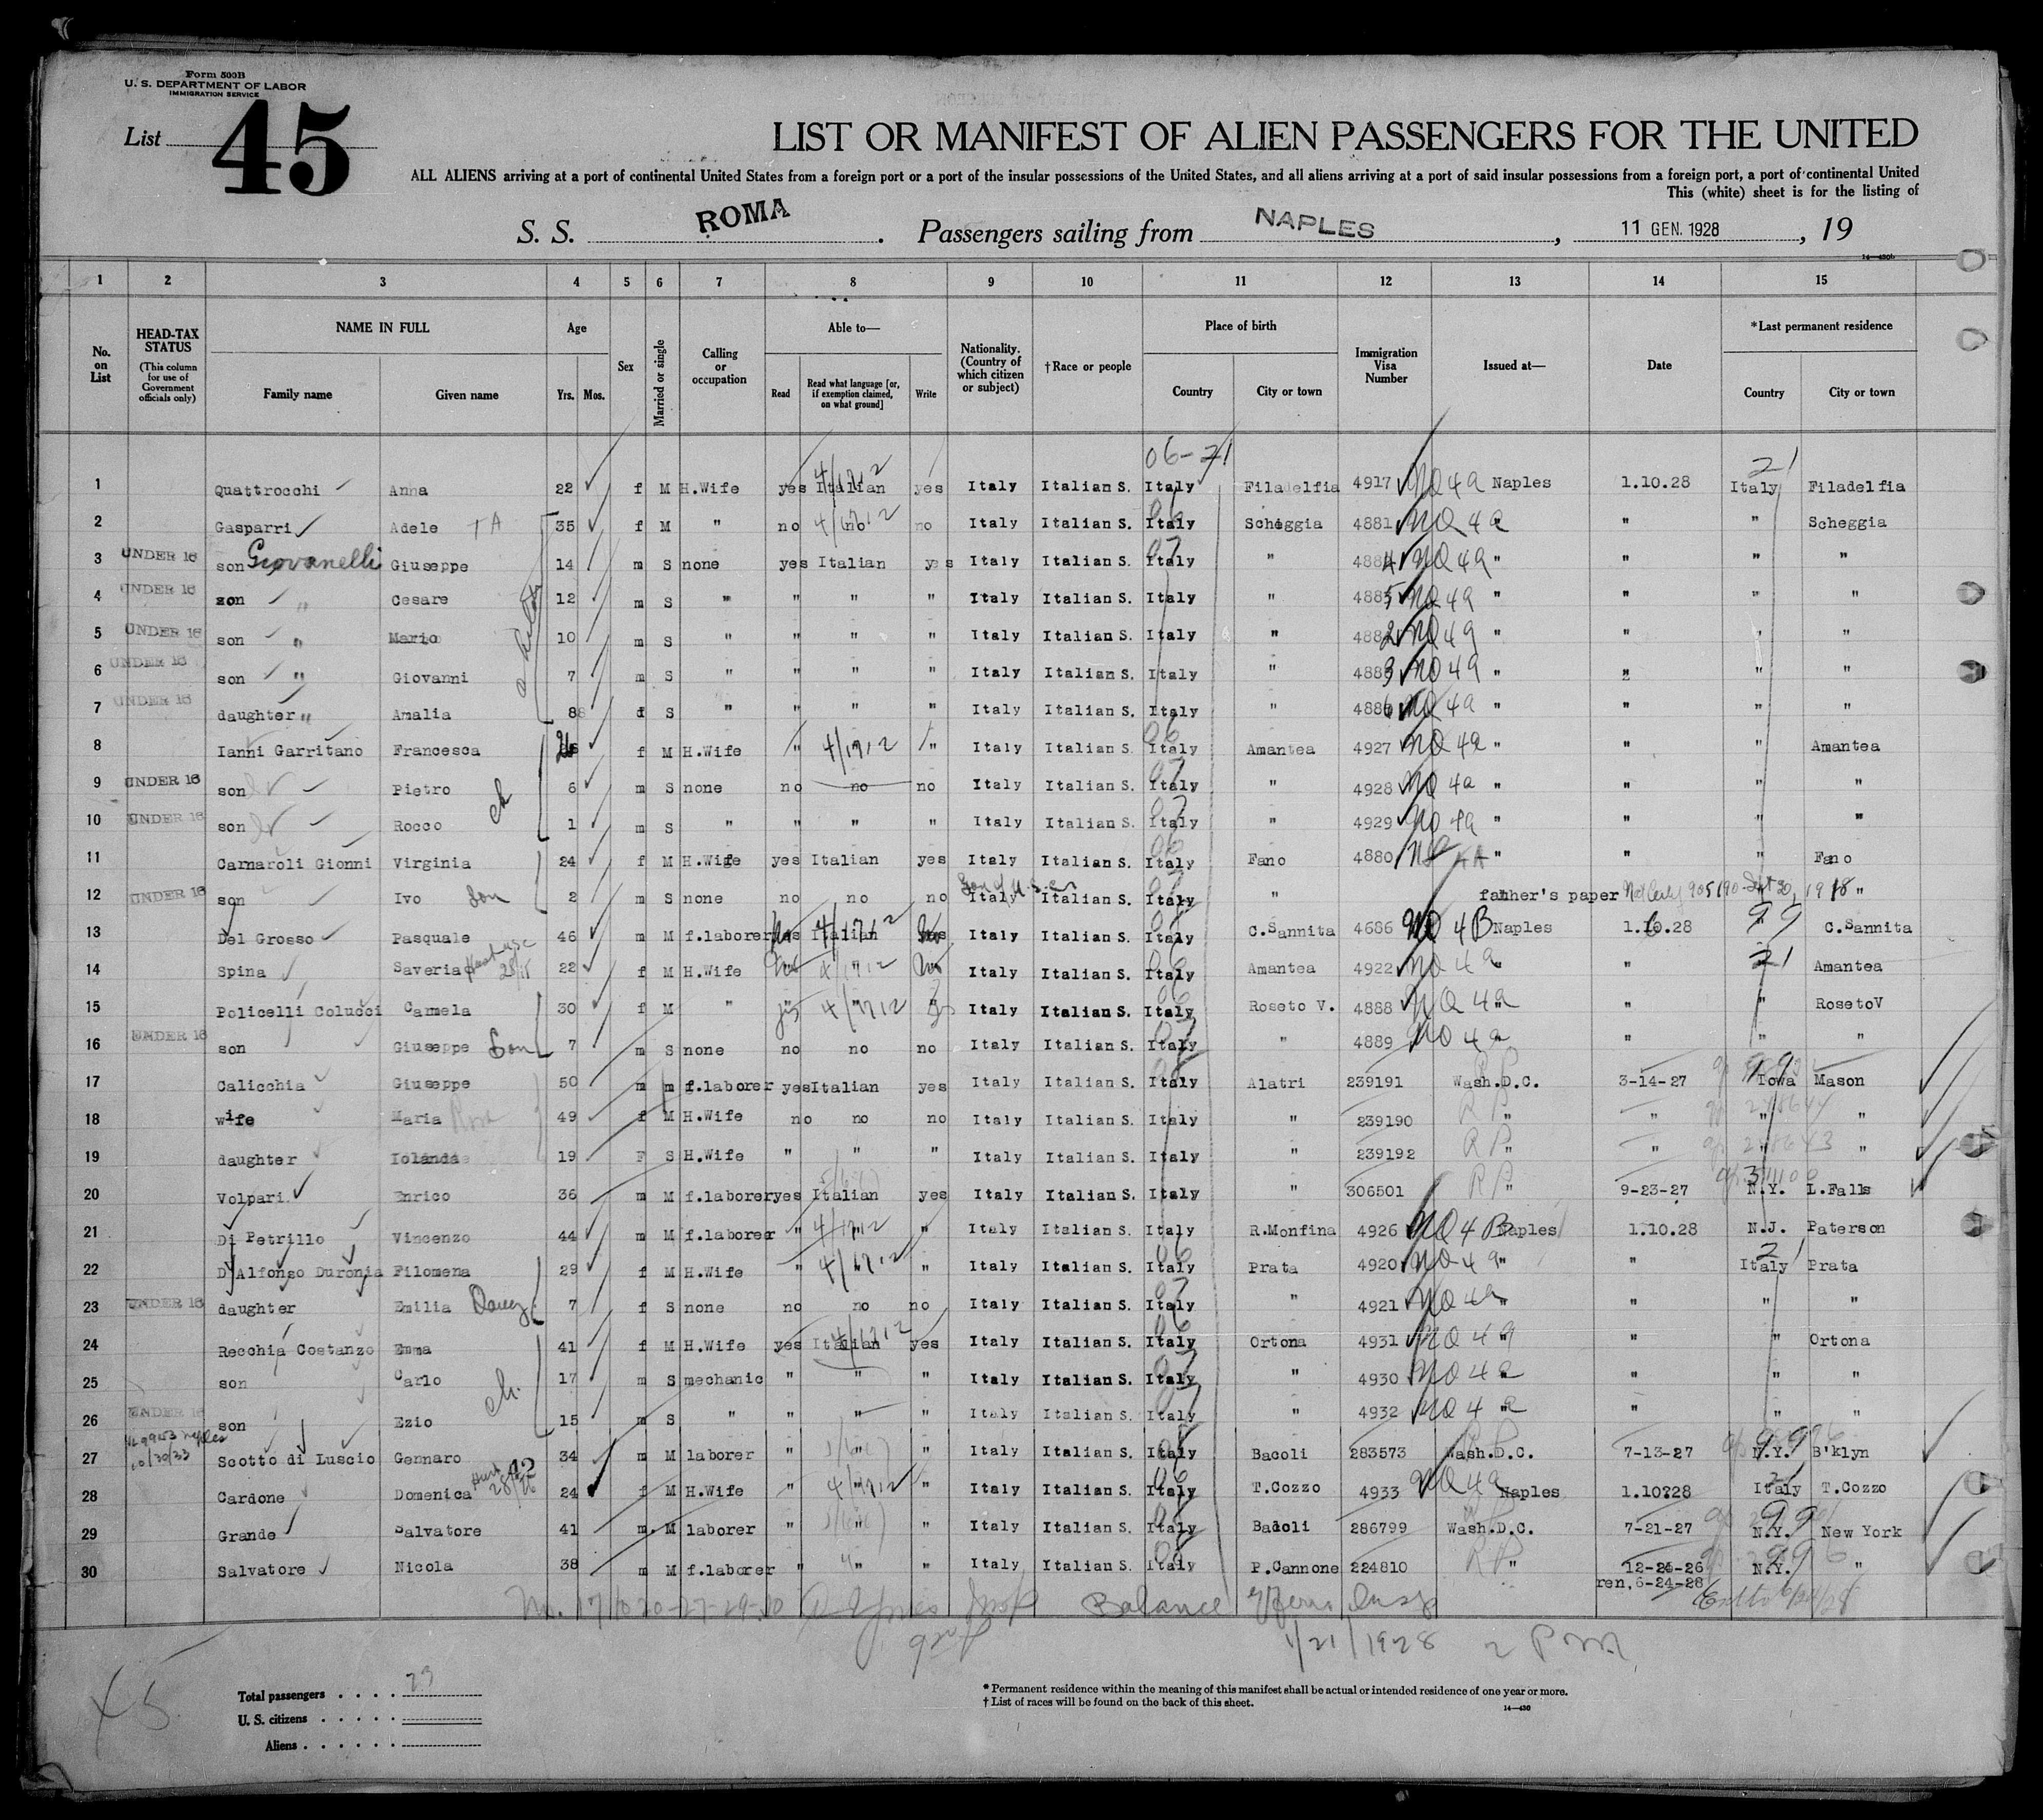 Form 500B
U. S. DEPARTMENT OF LABOR
IMMIGRATION SERVICE
List 45
LIST OR MANIFEST OF ALIEN PASSENGERS FOR THE UNITED
ALL ALIENS arriving at a port of continental United States from a foreign port or a port of the insular possessions of the United States, and all aliens arriving at a port of said insular possessions from a foreign port, a port of continental United
This (white) sheet is for the listing of
S. S. ROMA . Passengers sailing from NAPLES , 11 GEN. 1928 , 19
14—430b
1 2 3 4 5 6 7 8 9 10 11 12 13 14 15
No. on List
HEAD-TAX STATUS
(This column for use of Government officials only)
NAME IN FULL
Family name Given name
Age
Yrs. Mos.
Sex
Married or single
Calling or occupation
Able to—
Read
Read what language [or, if exemption claimed, on what ground]
Write
Nationality. (Country of which citizen or subject)
†Race or people
Place of birth
Country City or town
Immigration Visa Number
Issued at—
Date
*Last permanent residence
Country City or town
06-21 21
1 Quattrocchi Anna 22 f M H.Wife yes Italian 4/1712 yes Italy Italian S. Italy Filadelfia 4917 NQ 4a Naples 1.10.28 Italy Filadelfia
2 Gasparri Adele 35 f M " no no 4/1712 no Italy Italian S. Italy Scheggia 4881 NQ 4a " " " Scheggia
3 UNDER 16 son Giovanelli Giuseppe 14 m S none yes Italian yes Italy Italian S. Italy " 4884 NQ 4a " " " "
4 UNDER 16 son " Cesare 12 m S " " " " Italy Italian S. Italy " 4885 NQ 4a " " " "
5 UNDER 16 son " Mario 10 m S " " " " Italy Italian S. Italy " 4882 NQ 4a " " " "
6 UNDER 16 son " Giovanni 7 m S " " " " Italy Italian S. Italy " 4883 NQ 4a " " " "
7 UNDER 16 daughter " Amalia 8 f S " " " " Italy Italian S. Italy " 4886 NQ 4a " " " "
8 Ianni Garritano Francesca f M H.Wife " 4/1712 " Italy Italian S. Italy Amantea 4927 NQ 4a " " " Amantea
9 UNDER 16 son Pietro 6 m S none no no no Italy Italian S. Italy " 4928 NQ 4a " " " "
10 UNDER 16 son Rocco 1 m S " " " " Italy Italian S. Italy " 4929 NQ 4a " " " "
11 Carnaroli Gionni Virginia 24 f M H.Wife yes Italian yes Italy Italian S. Italy Fano 4880 " " " Fano
12 UNDER 16 son Ivo Son 2 m S none no no no Italy Italian S. Italy " father's paper "
13 Del Grosso Pasquale 46 m M f.laborer yes Italian 4/1712 yes Italy Italian S. Italy C.Sannita 4686 NQ 4B Naples 1.10.28 99 C.Sannita
14 Spina Saveria 22 f M H.Wife 4/1712 Italy Italian S. Italy Amantea 4922 NQ 4a " " 21 Amantea
15 Policelli Colucci Camela 30 f M " " 4/1712 " Italy Italian S. Italy Roseto V. 4888 NQ 4a " " " RosetoV
16 UNDER 16 son Giuseppe Son 7 m S none no no no Italy Italian S. Italy " 4889 NQ 4a " " " "
17 Calicchia Giuseppe 50 m m f.laborer yes Italian yes Italy Italian S. Italy Alatri 239191 Wash.D.C. 3-14-27 Iowa Mason
18 wife Maria 49 f M H.Wife no no no Italy Italian S. Italy " 239190 RP " " " "
19 daughter Iolanda 19 F S H.Wife " " " Italy Italian S. Italy " 239192 RP " " " "
20 Volpari Enrico 36 m M f.laborer yes Italian yes Italy Italian S. Italy " 306501 RP " 9-23-27 N.Y. L.Falls
21 Di Petrillo Vincenzo 44 m M f.laborer " 4/1712 " Italy Italian S. Italy R.Monfina 4926 NQ 4B Naples 1.10.28 N.J. Paterson
22 D'Alfonso Duronia Filomena 29 f M H.Wife " 4/1712 " Italy Italian S. Italy Prata 4920 NQ 4a " " 21 Italy Prata
23 UNDER 16 daughter Emilia 7 f S none no no no Italy Italian S. Italy " 4921 NQ 4a " " " "
24 Recchia Costanzo Emma 41 f M H.Wife yes Italian 4/1712 yes Italy Italian S. Italy Ortona 4931 NQ 4a " " " Ortona
25 son Carlo 17 m S mechanic " " " Italy Italian S. Italy " 4930 NQ 4a " " " "
26 UNDER 16 son Ezio 15 m S " " " " Italy Italian S. Italy " 4932 NQ 4a " " " "
27 10/30/33 Scotto di Luscio Gennaro 34 m M laborer " " " Italy Italian S. Italy Bacoli 283573 Wash.D.C. 7-13-27 N.Y. B'klyn
28 Cardone Domenica 24 f M H.Wife " 4/1712 " Italy Italian S. Italy T.Cozzo 4933 NQ 4a Naples 1.10?28 Italy T.Cozzo
29 Grande Salvatore 41 m. M laborer " " " Italy Italian S. Italy Bacoli 286799 Wash.D.C. 7-21-27 N.Y. New York
30 Salvatore Nicola 38 m M f.laborer " " " Italy Italian S. Italy P.Cannone 224810 RP " 12-24-26 N.Y. "
ren.6-24-28
Balance
1/21/1928 2 PM
45
Total passengers . . . . 23
U. S. citizens . . . . .
Aliens . . . . . .
* Permanent residence within the meaning of this manifest shall be actual or intended residence of one year or more.
† List of races will be found on the back of this sheet.
14—430